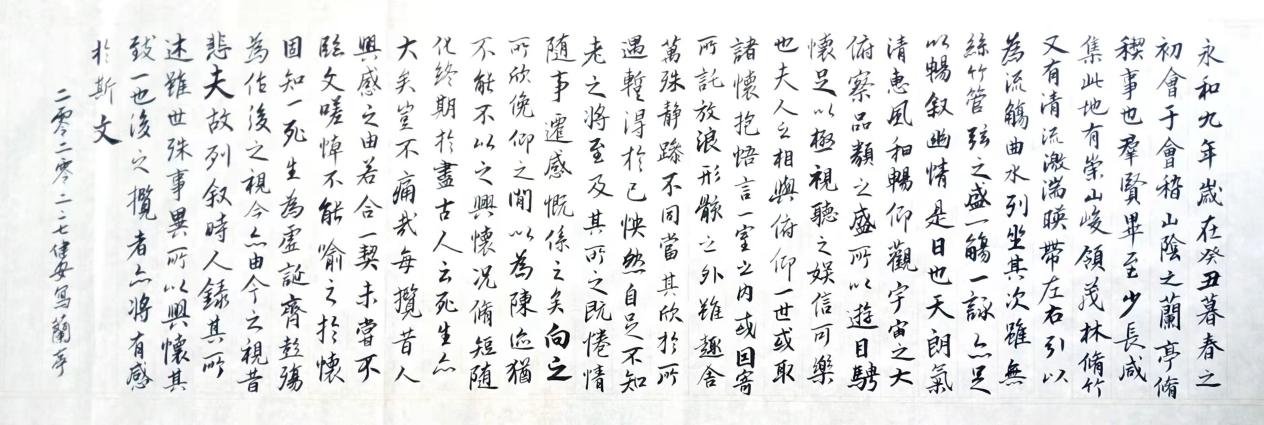 永和九年歲在癸丑暮春之
初會于會稽山陰之蘭亭脩
稧事也羣賢畢至少長咸
集此地有崇山峻領茂林脩竹
又有清流激湍暎帶左右引以
為流觴曲水列坐其次雖無
絲竹管弦之盛一觴一詠亦足
以暢叙幽情是日也天朗氣
清惠風和暢仰觀宇宙之大
俯察品類之盛所以遊目騁
懷足以極視聽之娛信可樂
也夫人之相與俯仰一世或取
諸懷抱悟言一室之內或因寄
所託放浪形骸之外雖趣舍
萬殊静躁不同當其欣於所
遇蹔得於己怏然自足不知
老之將至及其所之既惓情
隨事遷感慨係之矣向之
所欣俛仰之閒以為陳迹猶
不能不以之興懷况脩短隨
化終期於盡古人云死生亦
大矣豈不痛哉每攬昔人
興感之由若合一契未嘗不
臨文嗟悼不能喻之於懷
固知一死生為虛誕齊彭殤
為作後之視今亦由今之視昔
悲夫故列叙時人錄其所
述雖世殊事異所以興懷其
致一也後之攬者亦將有感
於斯文
二零二零二二七健安寫蘭亭